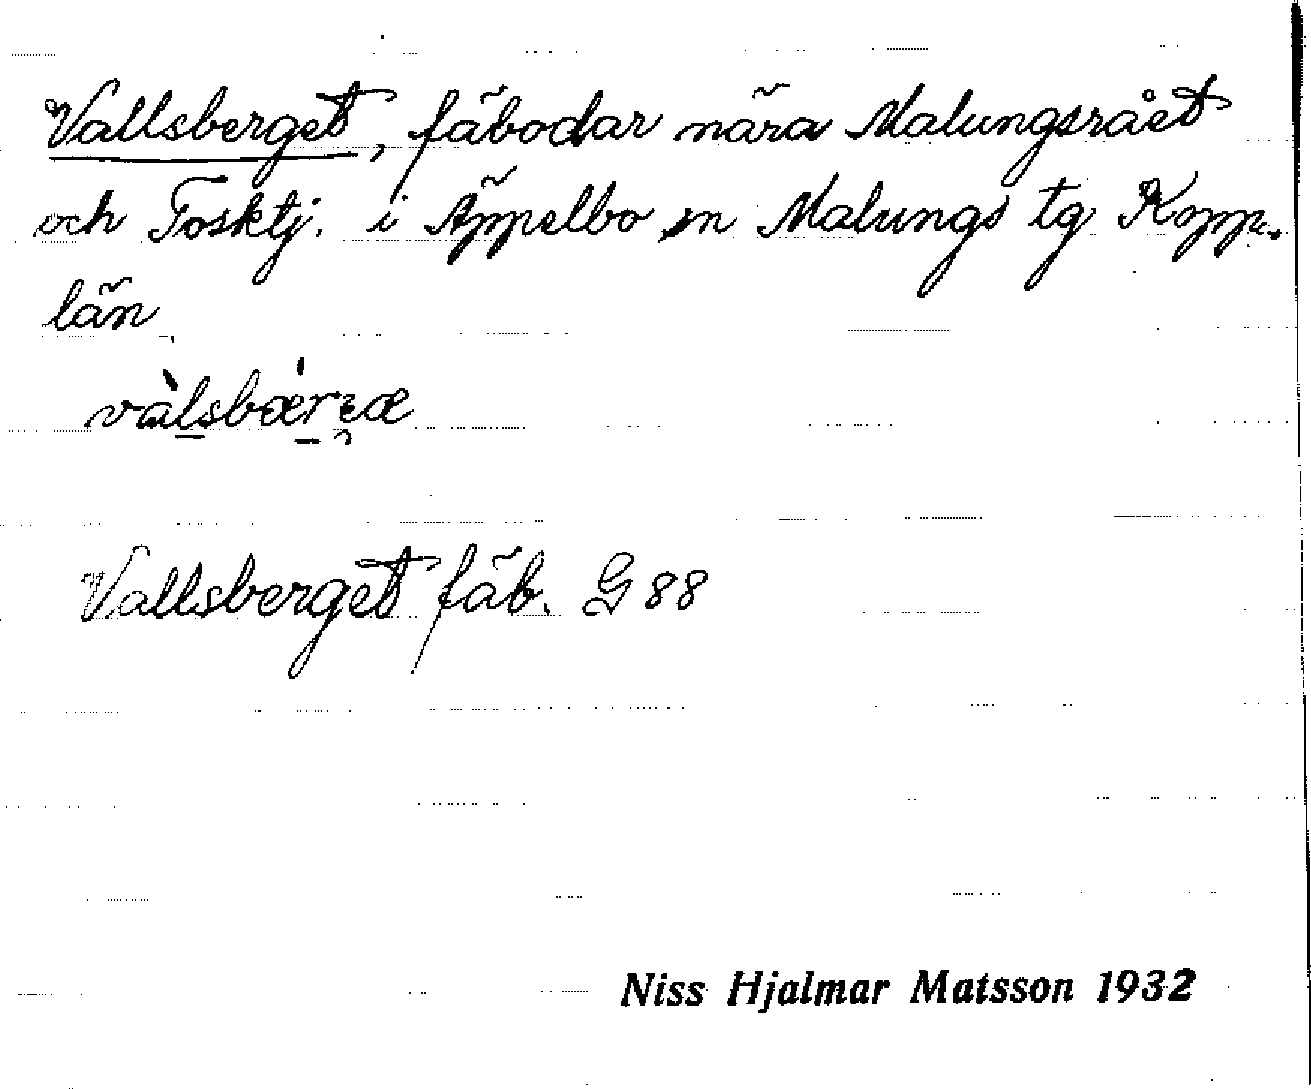 Vallsberget, fäbodar nära Malungsrået
och Tosktj. i Äppelbo sn Malungs tg Kopp.
län
Vallsberget fäb. G 88
Niss Hjalmar Matsson 1932